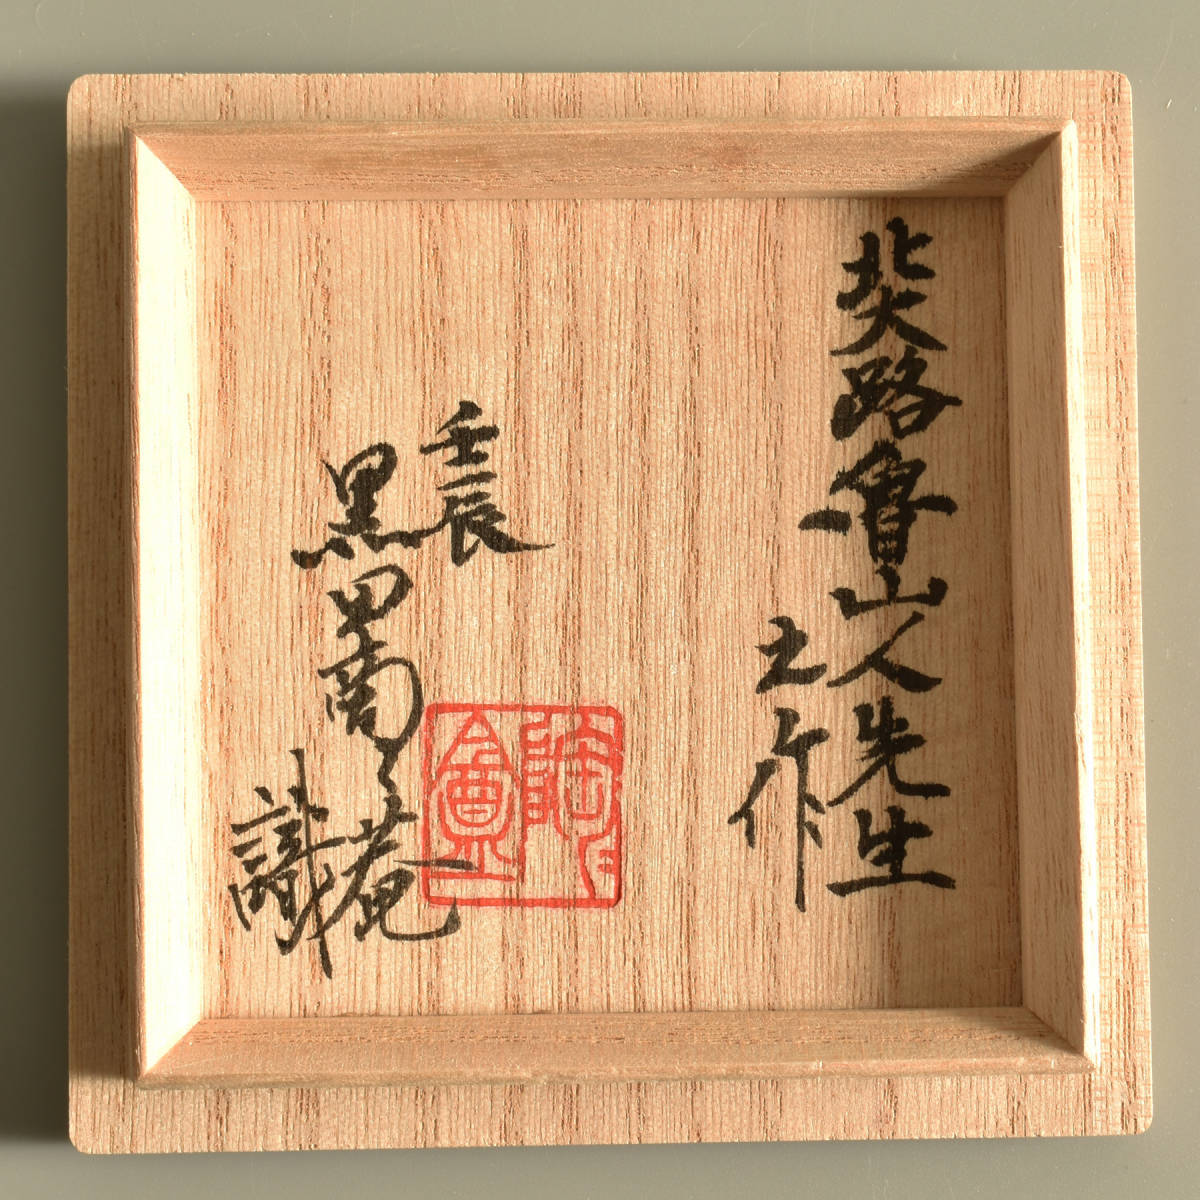 北大路魯山人先生
之作
壬辰
黒田陶々庵
識